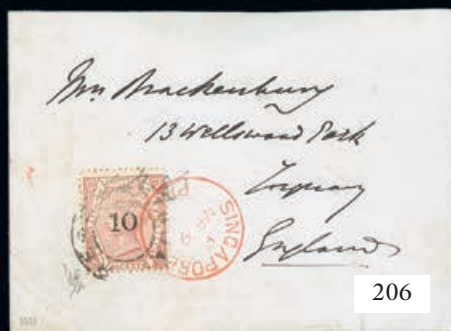 Mrs Brackenbury
13 Wellswood Park
Torquay
England
10
SINGAPORE
206